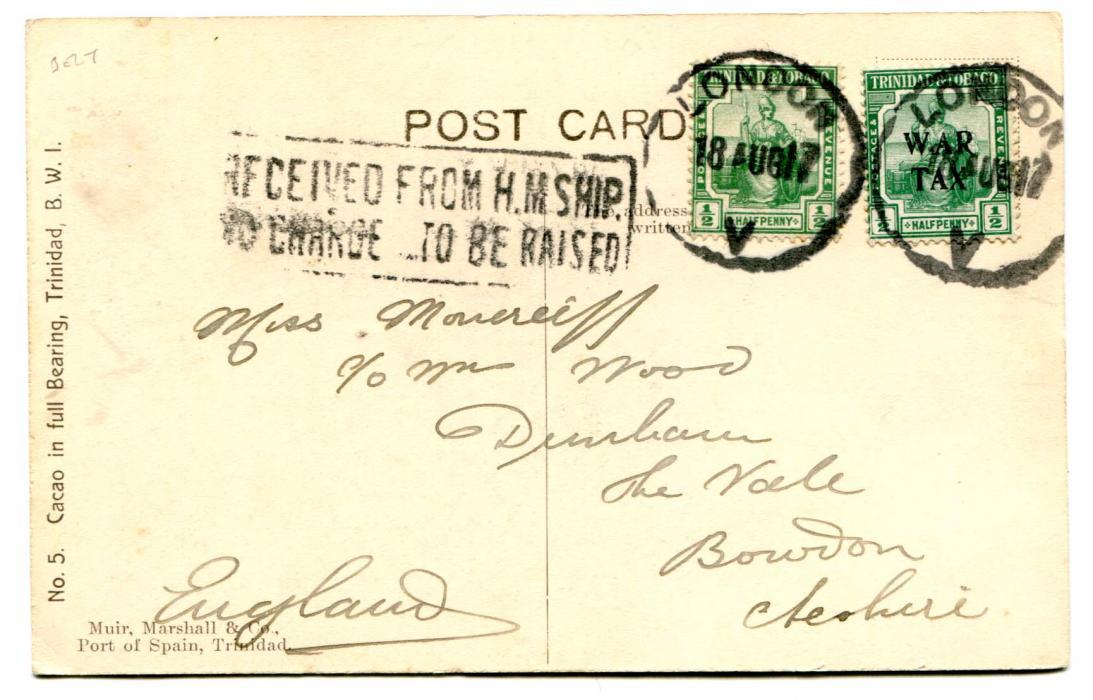 POST CARD
No. 5. Cacao in full Bearing, Trinidad, B. W. I.
RECEIVED FROM H.M SHIP,
NO CHARGE ... TO BE RAISED
address
written
TRINIDAD & TOBAGO
POSTAGE & REVENUE
½ HALFPENNY ½
LONDON
18 AUG 17
V
TRINIDAD & TOBAGO
POSTAGE & REVENUE
WAR
TAX
½ HALFPENNY ½
LONDON
18 AUG 17
V
Miss Moncreiff
c/o Mrs Wood
Dunham
The Vale
Bowdon
Cheshire
England
Muir, Marshall & Co.,
Port of Spain, Trinidad.